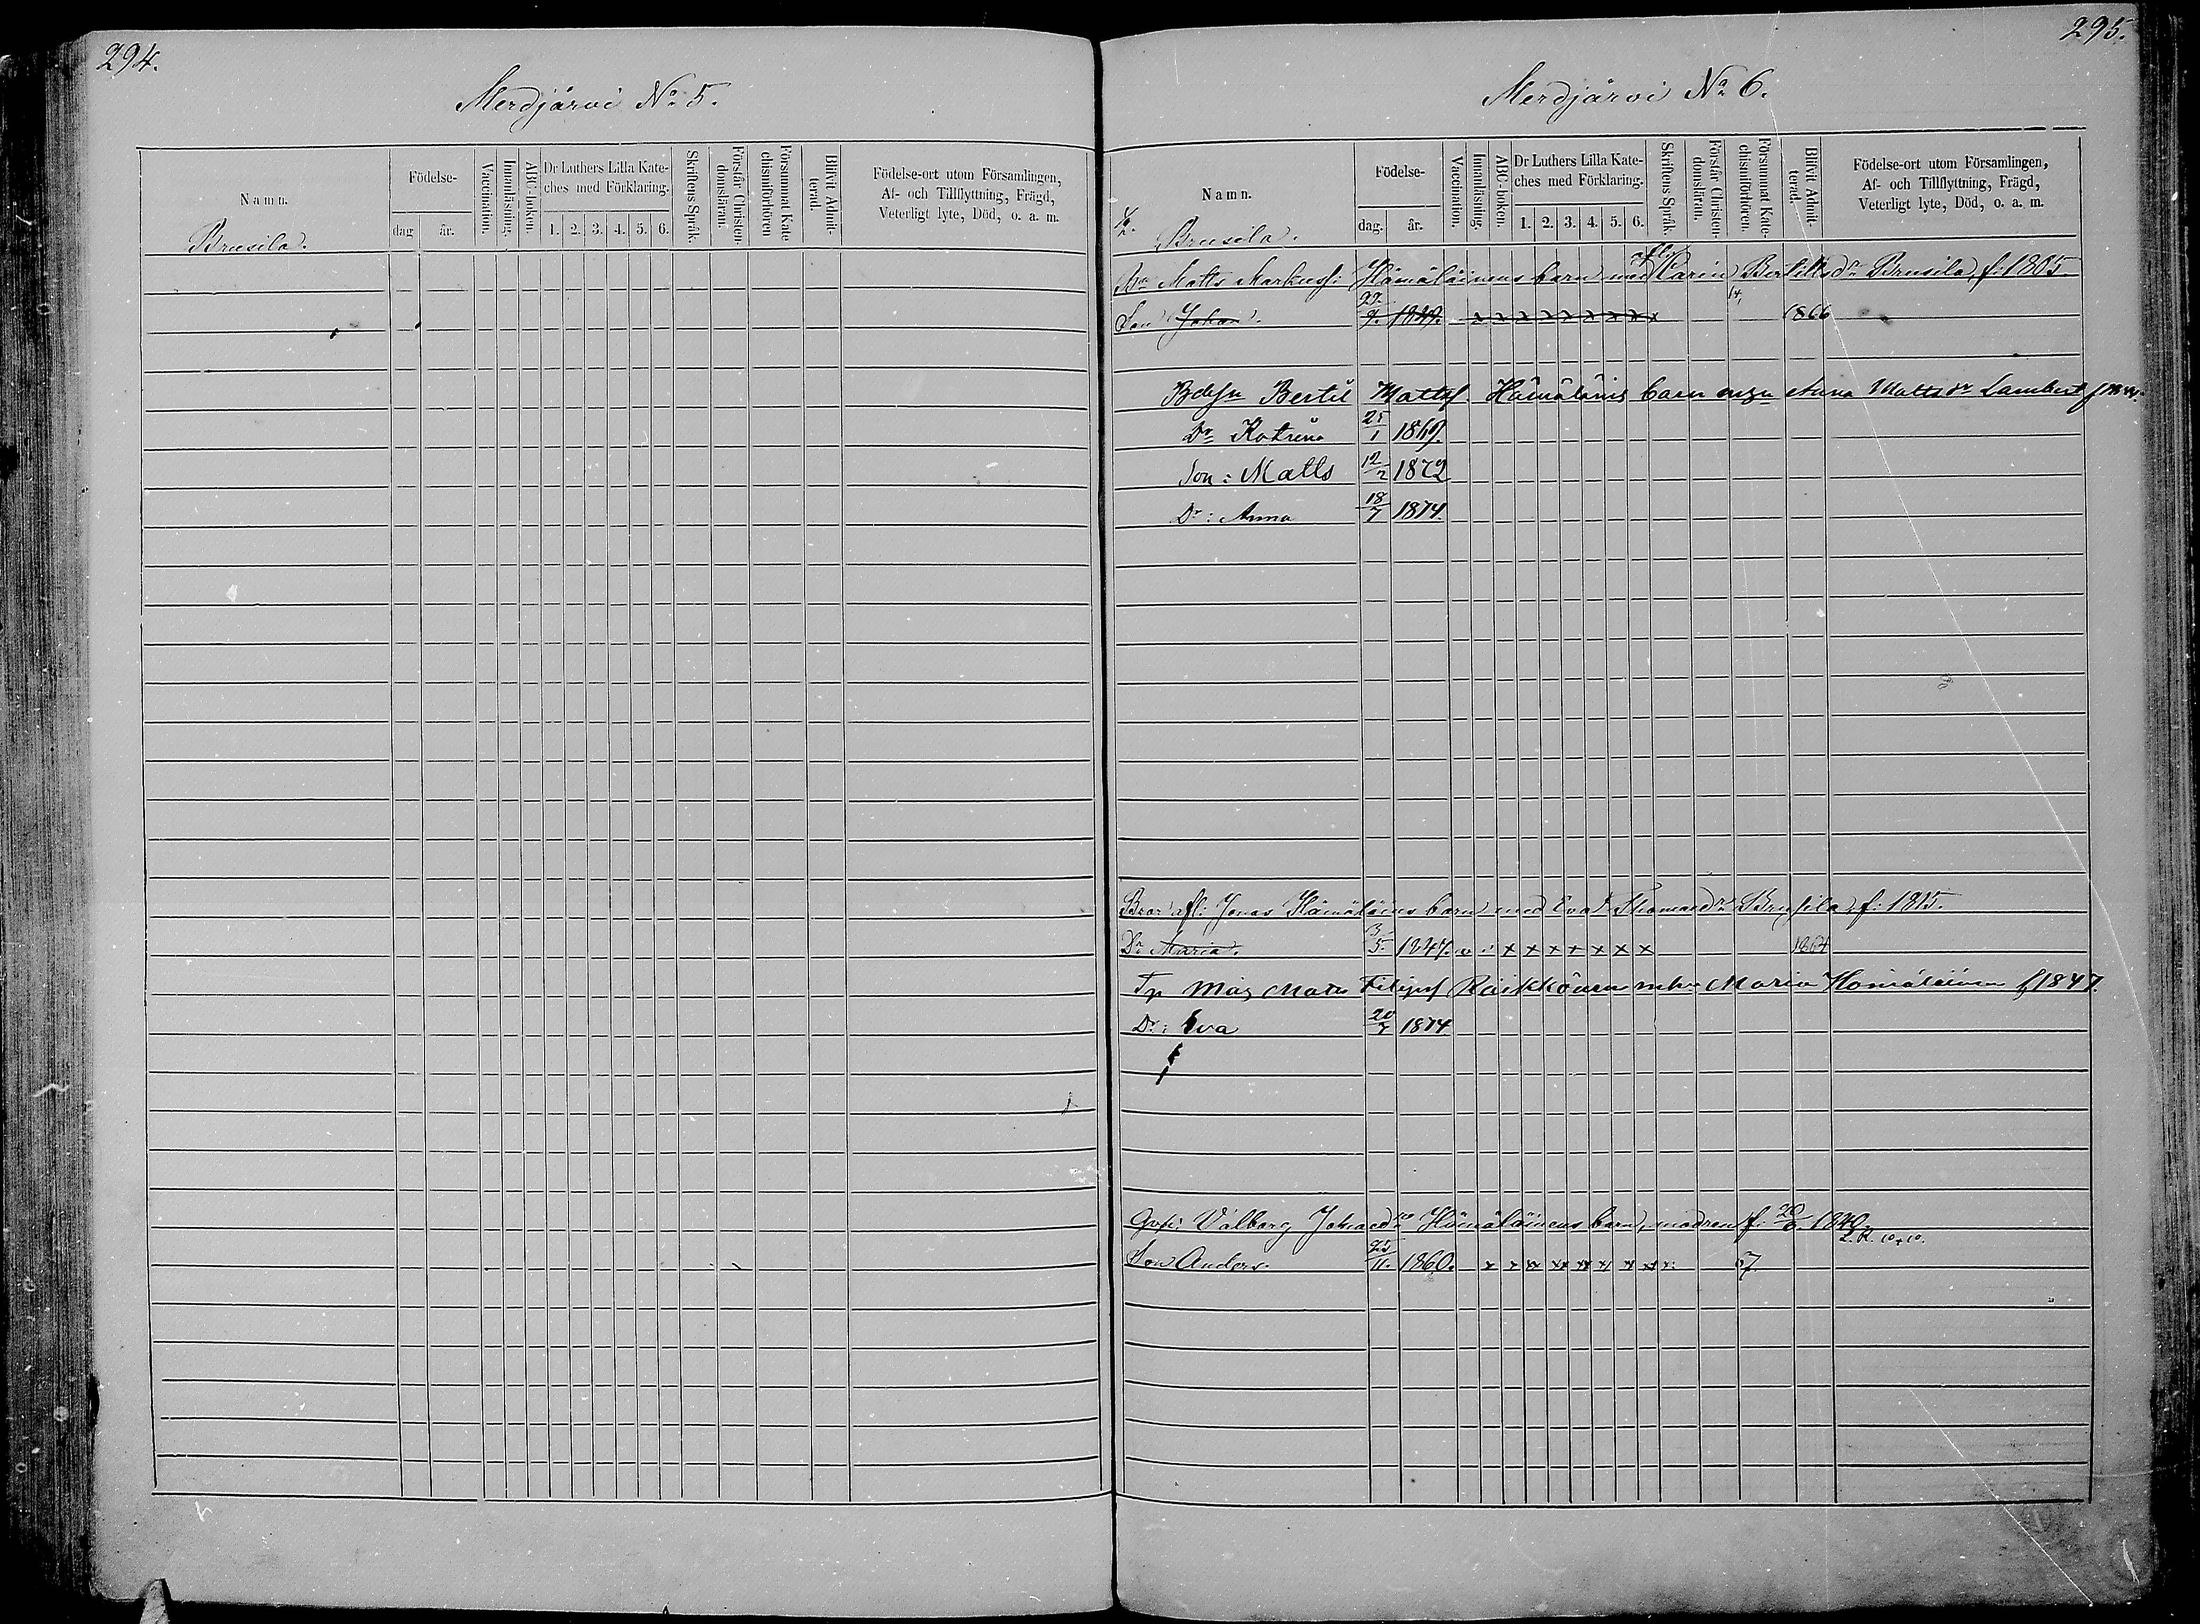 294.
Merdjärvi No 5.
Namn.
Födelse-
dag
år.
Vaccination.
Innanläsning.
ABC-boken.
Dr Luthers Lilla Kate-
ches med Förklaring.
1. 2. 3. 4. 5. 6.
Skriftens Språk.
Förstår Christen-
domsläran.
Försummat Kate
chismiförhören
Blifvit Admit-
terad.
Födelse-ort utom Församlingen,
Af- och Tillflyttning, Frägd,
Veterligt lyte, Död, o. a. m.
Brusila.
295.
Merdjärvi No 6.
Namn.
Födelse-
dag.
år.
Vaccination.
Innanläsning.
ABC-boken.
Dr Luthers Lilla Kate-
ches med Förklaring.
1. 2. 3. 4. 5. 6.
Skriftens Språk.
Förstår Christen-
domsläran.
Försummat Kate-
chismiförhören.
Blifvit Admit-
terad.
Födelse-ort utom Församlingen,
Af- och Tillflyttning, Frägd,
Veterligt lyte, Död, o. a. m.
Brusila.
Matts Markusf: Hämäläinens barn med Carin Bertilsdr Brusila, f: 1805
Son Johan. x x x x x x x x x 1866
Bertil Mattsf Hämäläins barn Anna Mattsdr Lambert
Dr Katrina 25/1 1869.
Son: Matts 12/2 1872
Dr: Anna 18/7 1874.
Bror afl: Jonas Hämäläins barn med Eva Thomasdr Brusila, f: 1815.
Dr Maria. 3/5. 1847. v i x x x x x x x 1864
Måg Mats Filipsf Räikköinen Maria Hämäläinen f 1847.
Dr: Eva 20/7 1874
Valborg Johansdr Hämäläinens barn, modren f: 20/6. 1840.
Son Anders. 1860. 67.